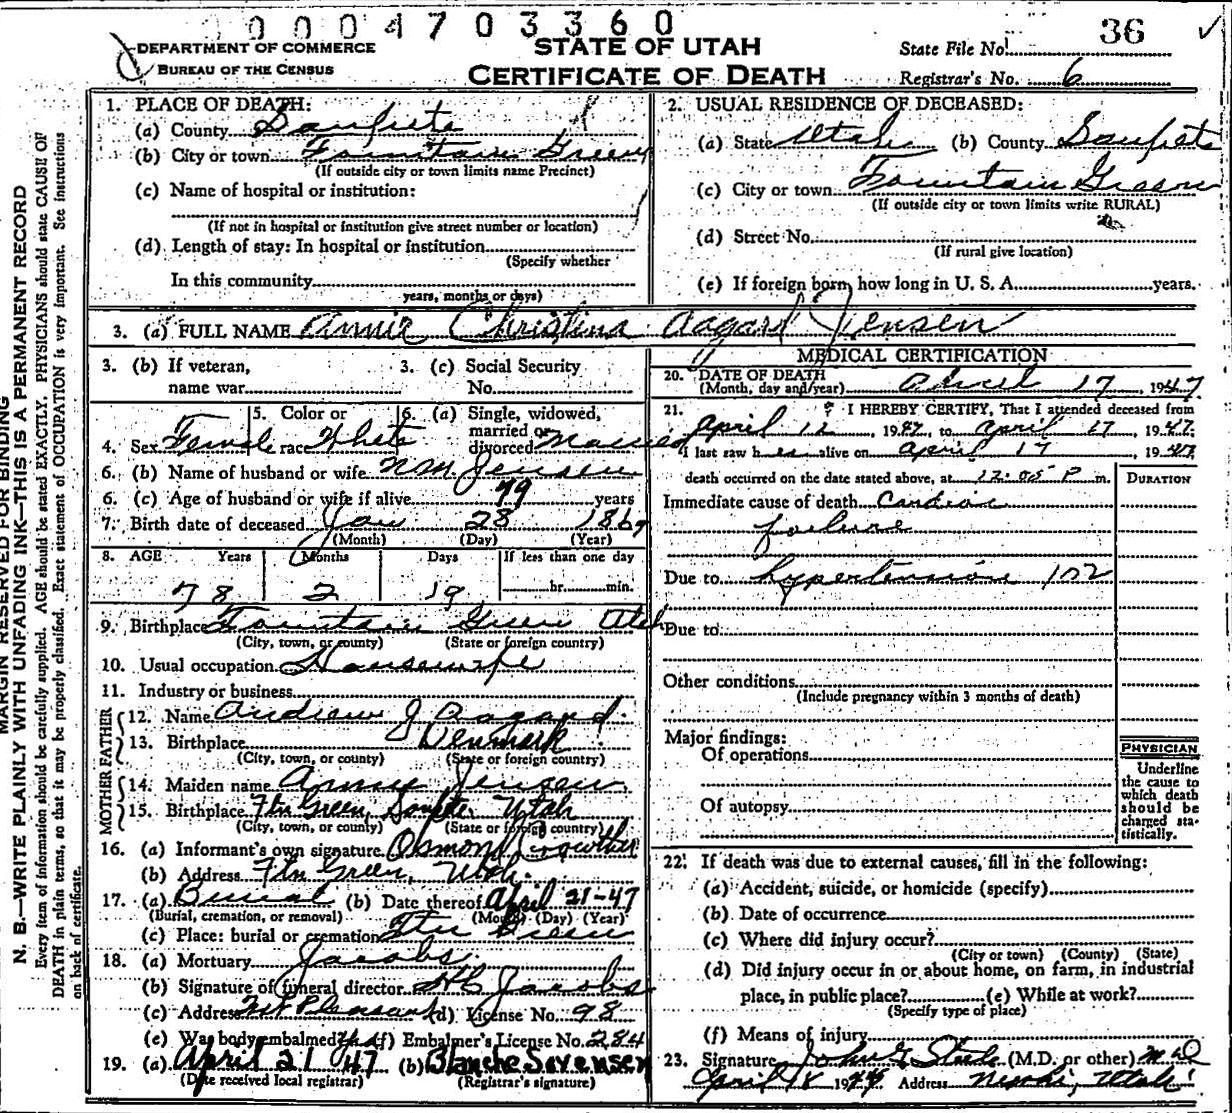 00004703360
36
DEPARTMENT OF COMMERCE
BUREAU OF THE CENSUS
STATE OF UTAH
CERTIFICATE OF DEATH
State File No.
Registrar's No. 6
MARGIN RESERVED FOR BINDING
N. B.—WRITE PLAINLY WITH UNFADING INK—THIS IS A PERMANENT RECORD
Every item of information should be carefully supplied. AGE should be stated EXACTLY. PHYSICIANS should state CAUSE OF
DEATH in plain terms, so that it may be properly classified. Exact statement of OCCUPATION is very important. See instructions
on back of certificate.
1. PLACE OF DEATH:
(a) County Sanpete
(b) City or town Fountain Green
(If outside city or town limits name Precinct)
(c) Name of hospital or institution:
(If not in hospital or institution give street number or location)
(d) Length of stay: In hospital or institution
(Specify whether
In this community
years, months or days)
2. USUAL RESIDENCE OF DECEASED:
(a) State Utah (b) County Sanpete
(c) City or town Fountain Green
(If outside city or town limits write RURAL)
(d) Street No.
(If rural give location)
(e) If foreign born, how long in U. S. A. years.
3. (a) FULL NAME Annie Christina Aagard Jensen
3. (b) If veteran, name war
3. (c) Social Security No.
4. Sex Female
5. Color or race White
6. (a) Single, widowed, married or divorced Married
6. (b) Name of husband or wife N M Jensen
6. (c) Age of husband or wife if alive 79 years
7. Birth date of deceased Jan 28 1869
(Month) (Day) (Year)
8. AGE Years Months Days If less than one day
78 2 19 hr. min.
9. Birthplace Fountain Green Utah
(City, town, or county) (State or foreign country)
10. Usual occupation Housewife
11. Industry or business
FATHER
12. Name Andrew J Aagard
13. Birthplace Denmark
(City, town, or county) (State or foreign country)
MOTHER
14. Maiden name Annie Jensen
15. Birthplace Ftn Green, Sanpete, Utah
(City, town, or county) (State or foreign country)
16. (a) Informant's own signature Osmond Crowther
(b) Address Ftn Green, Utah.
17. (a) Burial (b) Date thereof April 21-47
(Burial, cremation, or removal) (Month) (Day) (Year)
(c) Place: burial or cremation Ftn Green
18. (a) Mortuary Jacobs
(b) Signature of funeral director Jacobs
(c) Address Mt Pleasant (d) License No. 98
(e) Was body embalmed? Yes (f) Embalmer's License No. 284
19. (a) April 21 47 (b) Blanche Sorensen
(Date received local registrar) (Registrar's signature)
MEDICAL CERTIFICATION
20. DATE OF DEATH
(Month, day and year) April 17, 1947
21. I HEREBY CERTIFY, That I attended deceased from
April 12, 1947, to April 17, 1947.
I last saw her alive on April 17, 1947
death occurred on the date stated above, at 12:05 P m.
DURATION
Immediate cause of death Cardiac
failure
Due to hypertension 102
Due to
Other conditions
(Include pregnancy within 3 months of death)
Major findings:
Of operations
Of autopsy
PHYSICIAN
Underline
the cause to
which death
should be
charged sta-
tistically.
22. If death was due to external causes, fill in the following:
(a) Accident, suicide, or homicide (specify)
(b) Date of occurrence
(c) Where did injury occur?
(City or town) (County) (State)
(d) Did injury occur in or about home, on farm, in industrial
place, in public place? (e) While at work?
(Specify type of place)
(f) Means of injury
23. Signature John G Steele (M.D. or other) M D
April 18 1947 Address Nephi, Utah